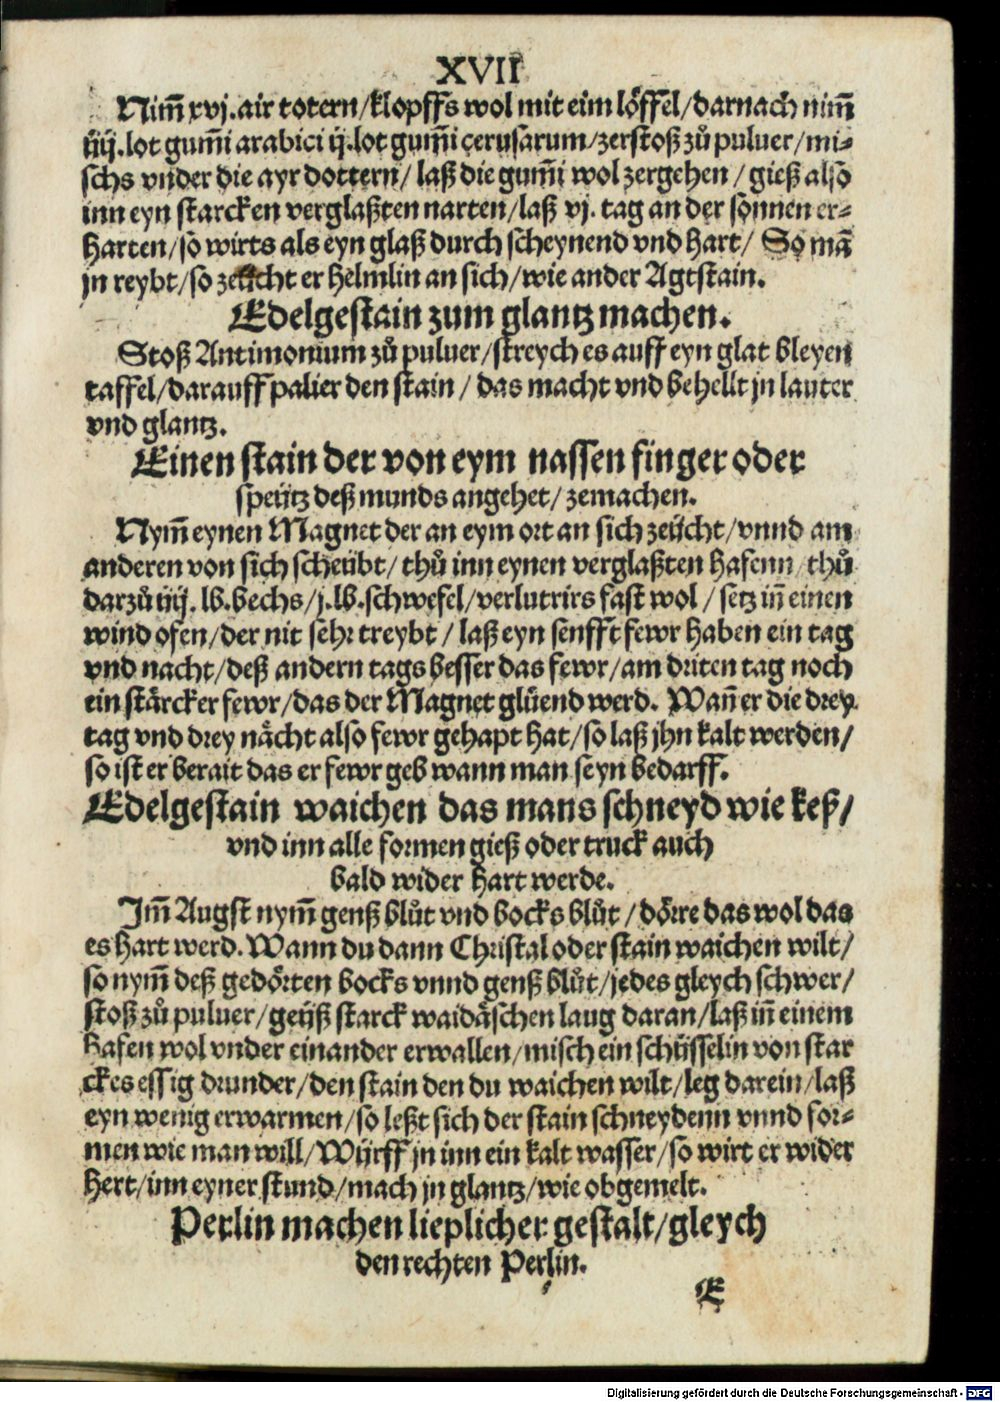 XVII
Nim̃ xvj. air totern/klopffs wol mit eim löffel/darnach nim̃
iiij. lot gum̃i arabici ij. lot gum̃i cerusarum/zerstoß zů puluer/mi-
schs vnder die ayr dottern/ laß die gum̃i wol zergehen / gieß also
inn eyn starcken verglaßten narten/laß vj. tag an der sonnen er-
harten/so wirts als eyn glaß durch scheynend vnd hart/ So mã
jn reybt/so zeücht er helmlin an sich/wie ander Agtstain.
Edelgestain zum glantz machen.
Stoß Antimonium zů puluer/streych es auff eyn glat bleyen
taffel/darauff palier den stain / das macht vnd behellt jn lauter
vnd glantz.
Einen stain der von eym nassen finger oder
speütz deß munds angehet/ zemachen.
Nym̃ eynen Magnet der an eym ort an sich zeücht/vnnd am
anderen von sich scheübt/ thů inn eynen verglaßten hafenn/thů
darzů iiij. lb. bechs/j. lb. schwefel/verlutrirs fast wol / setz iñ einen
wind ofen/der nit sehr treybt / laß eyn senfft fewr haben ein tag
vnd nacht/deß andern tags besser das fewr/am dritten tag noch
ein stärcker fewr/das der Magnet glüend werd. Wañ er die drey
tag vnd drey nächt also fewr gehapt hat/so laß jhn kalt werden/
so ist er berait das er fewr geb wann man seyn bedarff.
Edelgestain waichen das mans schneyd wie keß/
vnd inn alle formen gieß oder truck auch
bald wider hart werde.
Im̃ Augst nym̃ genß blůt vnd bocks blůt / dörre das wol das
es hart werd. Wann du dann Christal oder stain waichen wilt/
so nym̃ deß gedörten bocks vnnd genß blůt/jedes gleych schwer/
stoß zů puluer/geüß starck waidäschen laug daran/laß iñ einem
hafen wol vnder einander erwallen/misch ein schüsselin von star
ckes essig drunder/den stain den du waichen wilt/leg darein/laß
eyn wenig erwarmen/so leßt sich der stain schneydenn vnnd for-
men wie man will/Würff jn inn ein kalt wasser/so wirt er wider
hert/inn eyner stund/mach jn glantz/wie obgemelt.
Perlin machen lieplicher gestalt/gleych
den rechten Perlin.
E
Digitalisierung gefördert durch die Deutsche Forschungsgemeinschaft - DFG